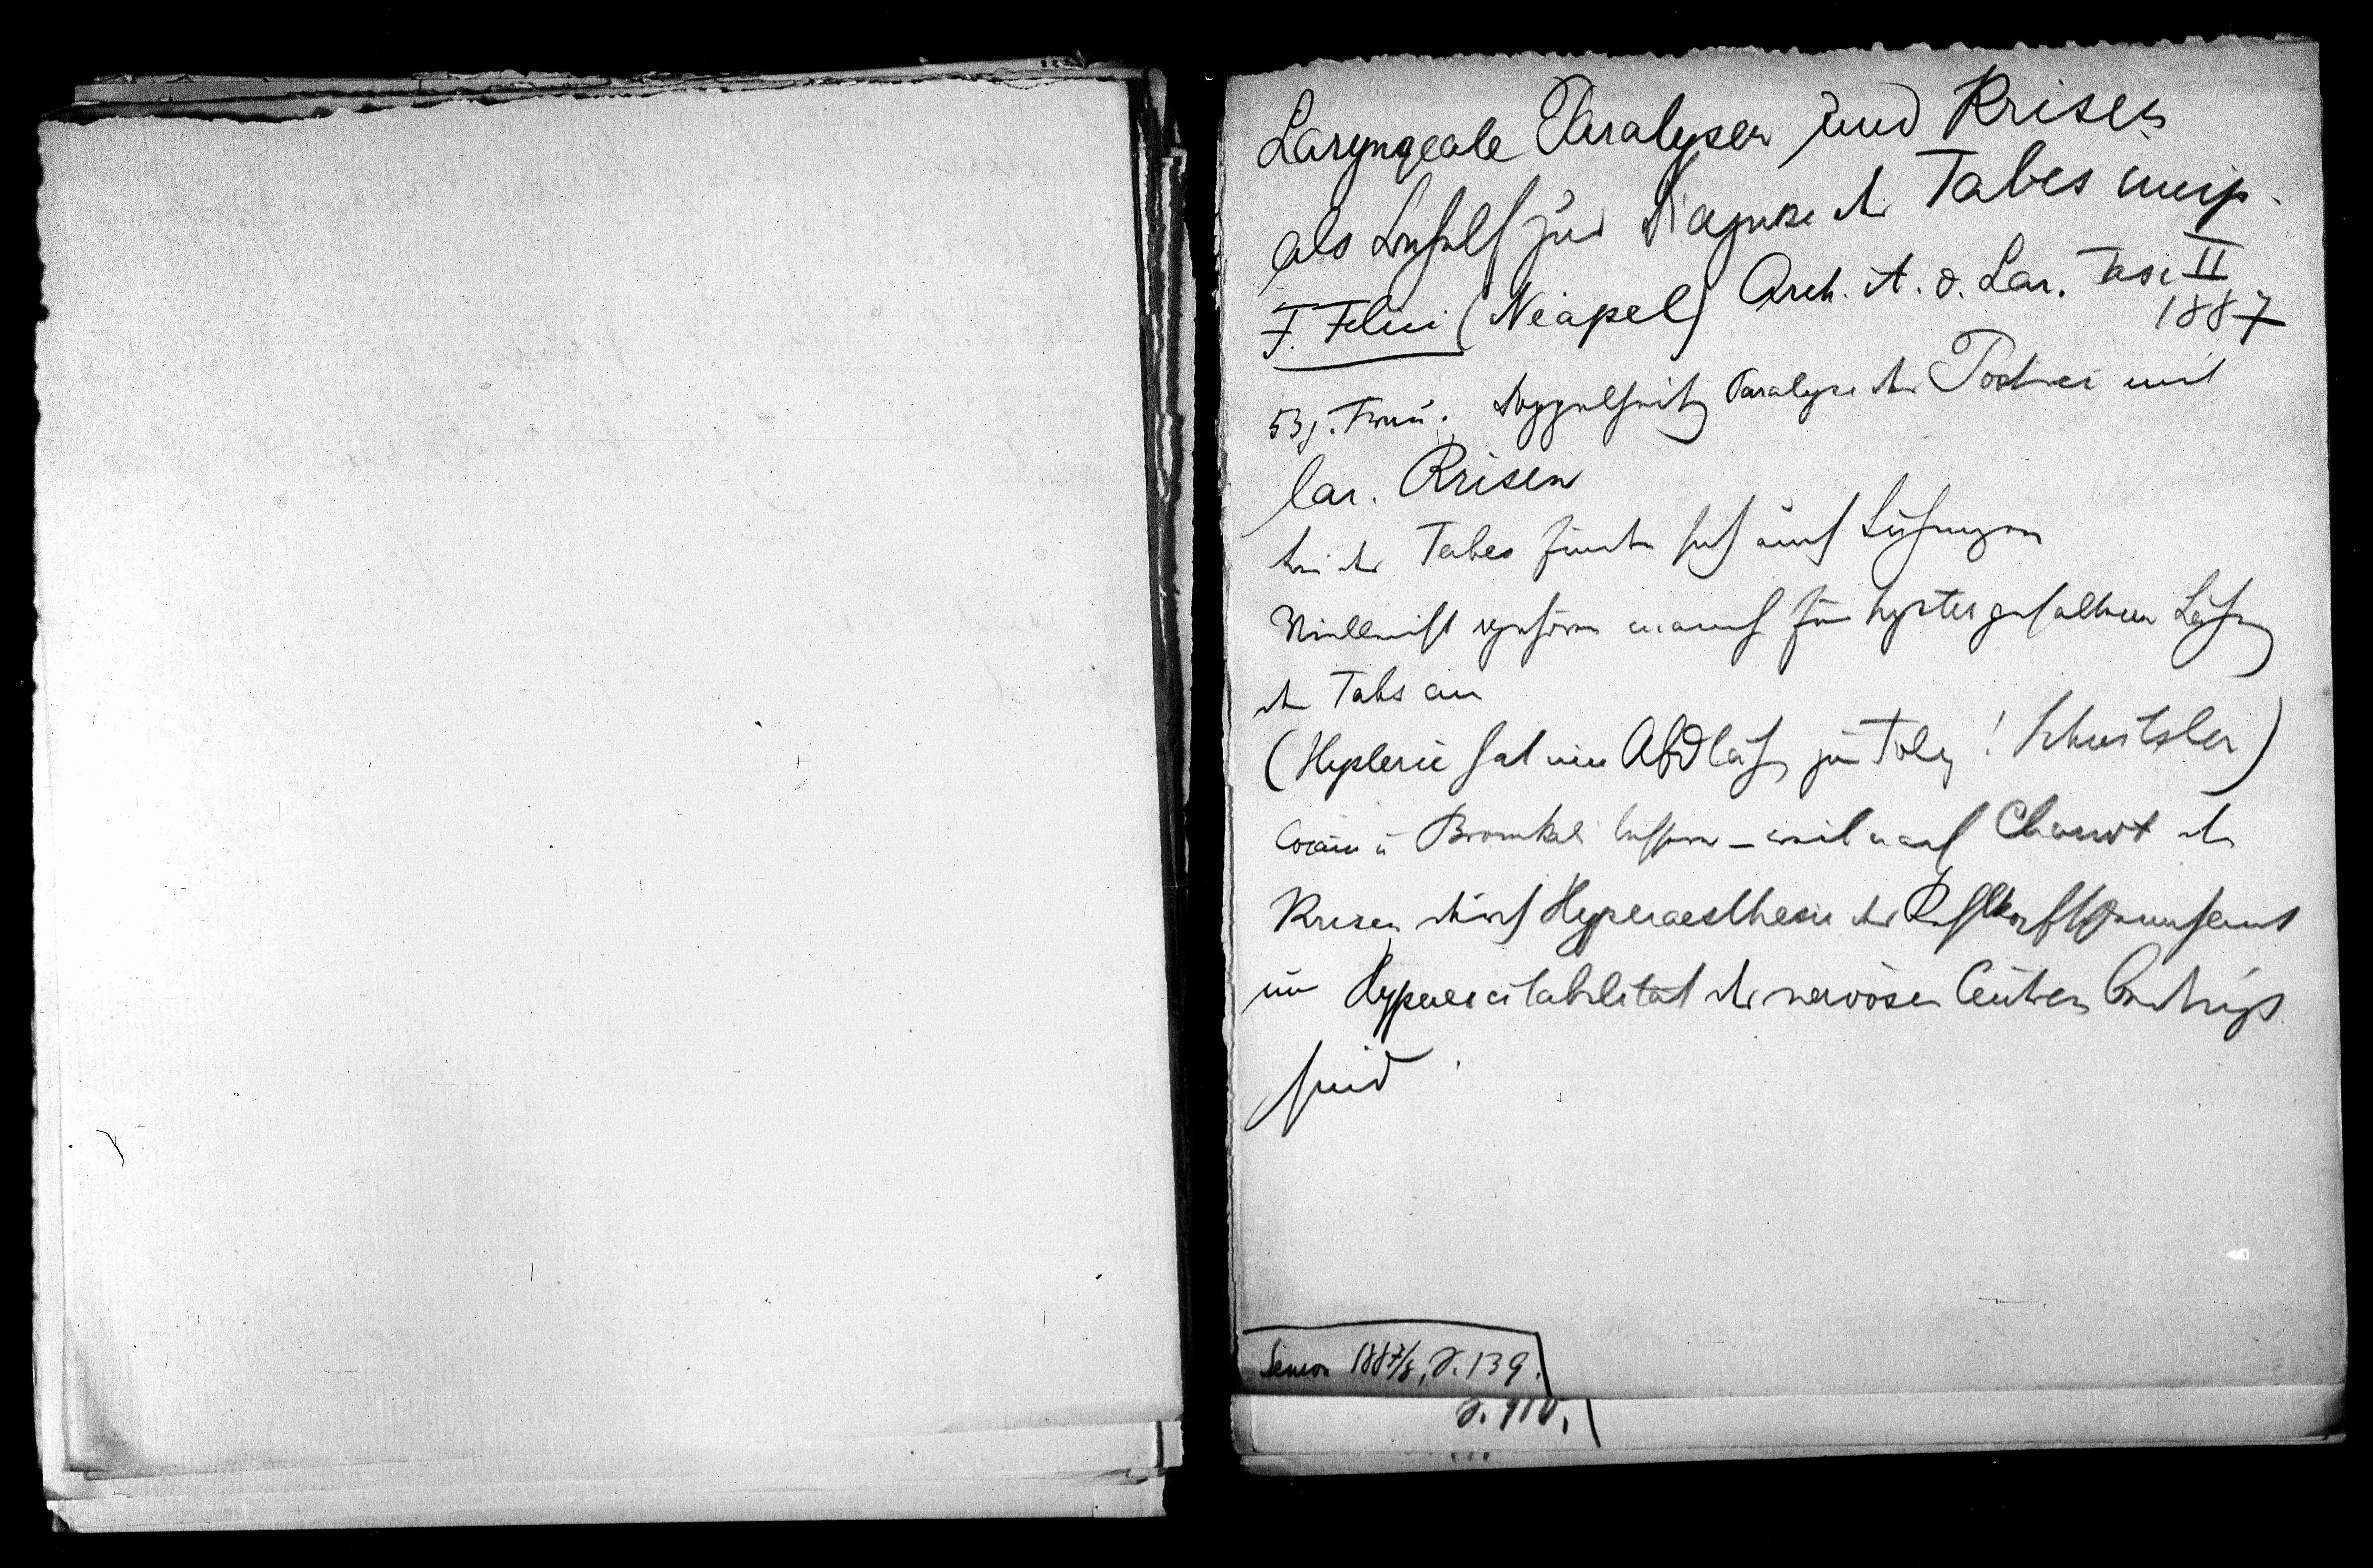 Laryngeale Paralysen und Krisen
als Behelf zur Diagnose der Tabes incip.
F. Felici (Neapel) Arch. it. d. Lar. Fasc II
1887
53j. Frau. Doppelseitig Paralyse der Postici mit
lar. Krisen
bei der Tabes finden sich auch Lähmungen
Vielleicht gehören manch für hyster gehaltenen Lähm
der Tabes an
(Hysterie hat nie Abdläh zur Folg! Schnitzler)
Cocain u Bromkali bessern – weil nach Charcot die
Krisen durch Hyperaesthesie der Kehlkopfschleimhaut
und Hyperexcitabilität der nervösen Centren bedingt
sind.
Semon 1887/8, S. 139.
S. 910.